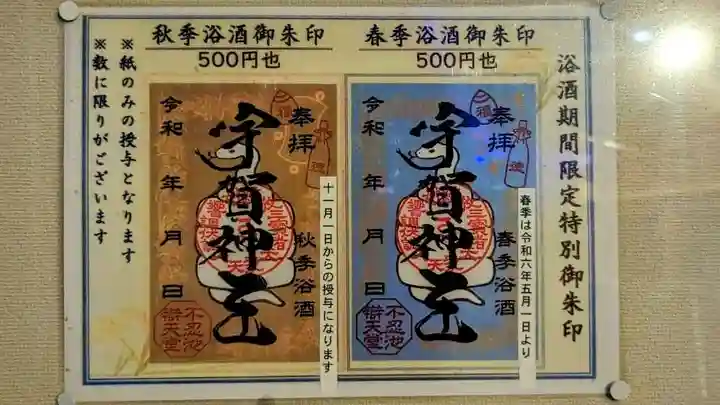 浴酒期間限定特別御朱印
春季浴酒御朱印
500円也
奉拝
宇賀神王
春季浴酒
令和 年 月 日
福
徳
不忍池
辯天堂
春季は令和六年五月一日より
秋季浴酒御朱印
500円也
奉拝
宇賀神王
秋季浴酒
令和 年 月 日
福
徳
不忍池
辯天堂
十一月一日からの授与になります
※紙のみの授与となります
※数に限りがございます